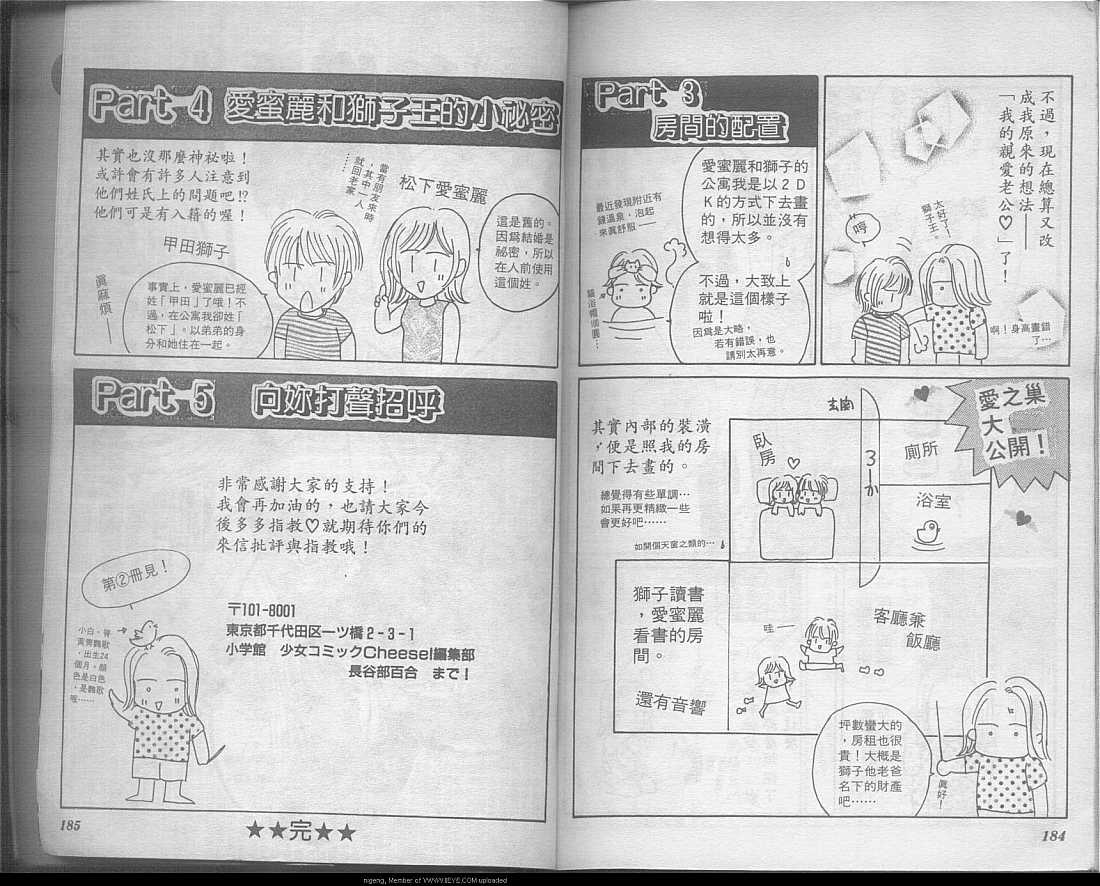 不過，現在總算又改
成我原來的想法——
「我的親愛老公♡」了！
太好了！
獅子王。
哼
啊！身高畫錯
了…
Part 3
房間的配置
愛蜜麗和獅子的
公寓我是以2D
K的方式下去畫
的，所以並沒有
想得太多。
不過，大致上
就是這個樣子
啦！
因為是大略，
若有錯誤，也
請別太再意。
最近發現附近有
錢溫泉，泡起
來真舒服——
愛之巢
大
公開！
其實內部的裝潢
，便是照我的房
間下去畫的。
總覺得有些單調…
如果再更精緻一些
會更好吧……
如開個天窗之類的…
玄関
ろーか
臥
房
廁所
浴室
獅子讀書
，愛蜜麗
看書的房
間。
還有音響
哇——
客廳兼
飯廳
坪數蠻大的
，房租也很
貴！大概是
獅子他老爸
名下的財產
吧……
真好！
184
Part 4 愛蜜麗和獅子王的小祕密
其實也沒那麼神祕啦！
或許會有許多人注意到
他們姓氏上的問題吧!?
他們可是有入籍的喔！
當有朋友來時
，其中一人
就回老家
……
松下愛蜜麗
這是舊的。
因為結婚是
祕密，所以
在人前使用
這個姓。
甲田獅子
事實上，愛蜜麗已經
姓「甲田」了哦！不
過，在公寓我卻姓「
松下」。以弟弟的身
分和她住在一起。
真麻煩——
Part 5 向妳打聲招呼
非常感謝大家的支持！
我會再加油的，也請大家今
後多多指教♡就期待你們的
來信批評與指教哦！
第②冊見！
〒101-8001
東京都千代田区一ツ橋2-3-1
小学館 少女コミックCheese!編集部
長谷部百合 まで！
小白。脊
出生24
個月。顏
色是白色
，是鸚歌
喔……
185
★★完★★
nigeng, Member of WWW.IIEYE.COM uploaded